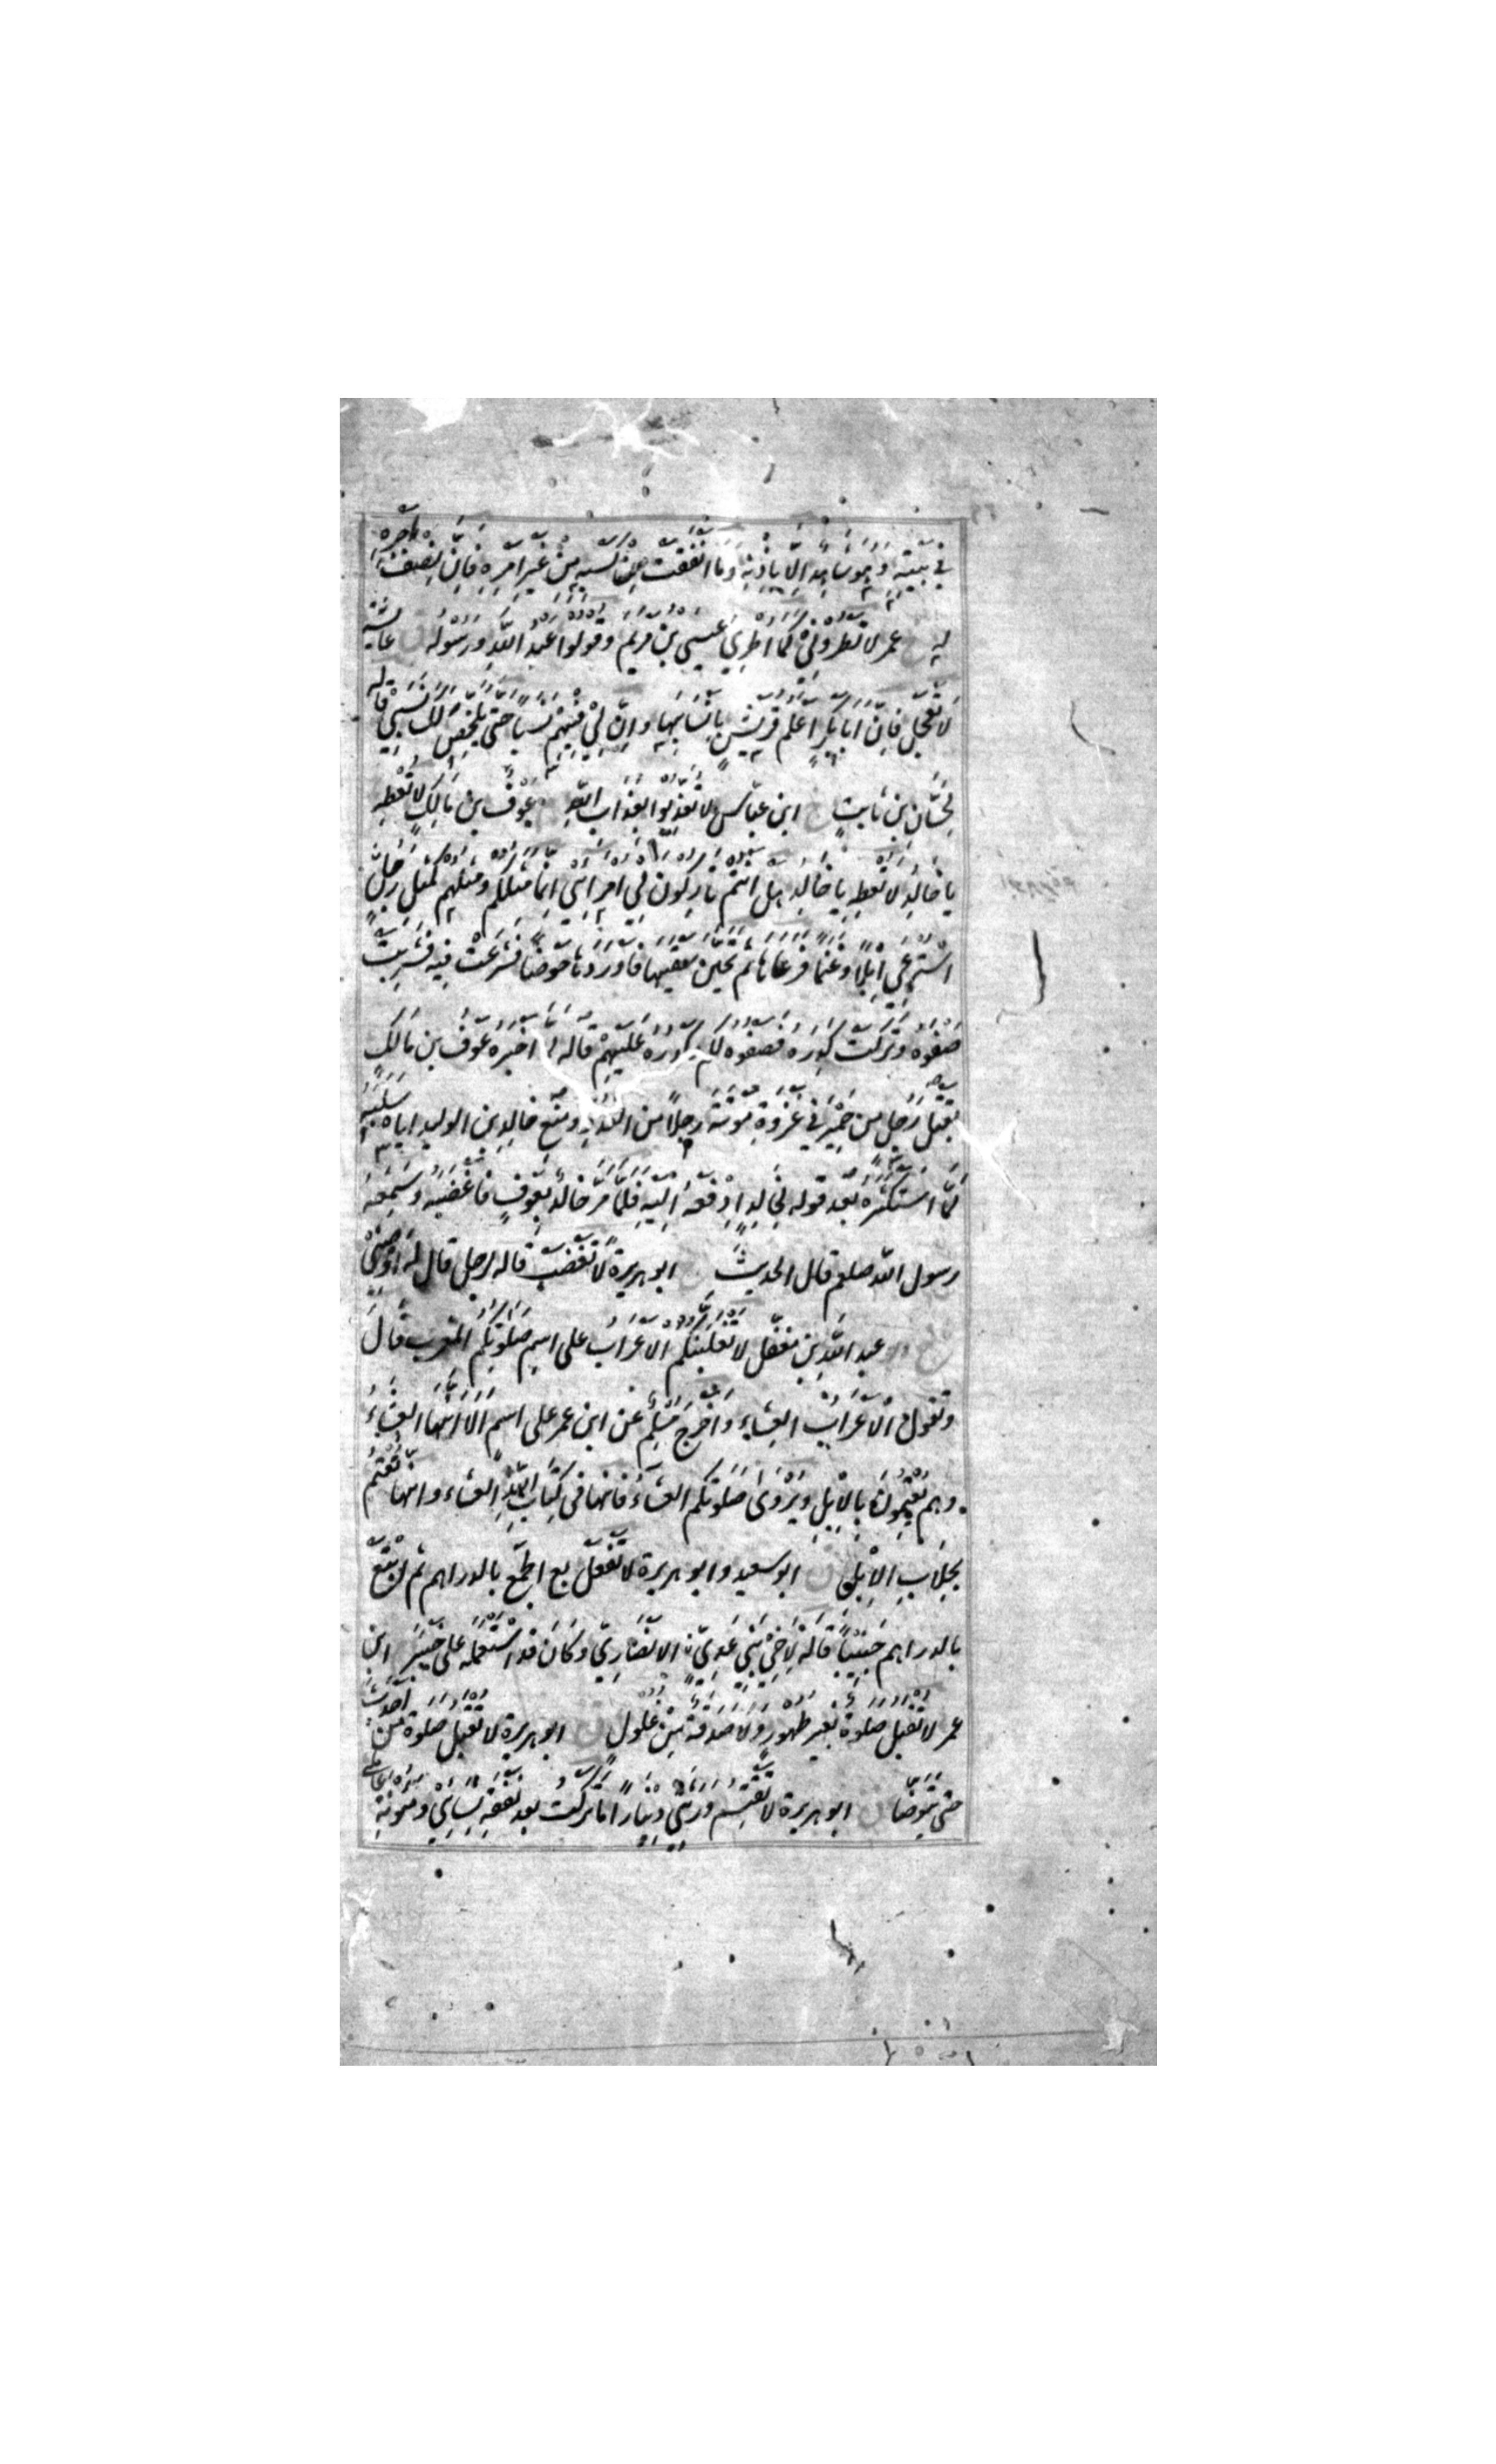 في بيته وهو شاهد الا باذنه وما انفقت من كسبه من غير امره فان نصف اجره
له عمر لا تطروني كما اطري عيسى بن مريم وقولوا عبد الله ورسوله عايشة
لا تعجل فان ابا بكر اعلم قريش بانسابها وان لي فيهم نسبا حتى يلخص لك نسبي قاله
لحسان بن ثابت ابن عباس لا تعذبوا بعذاب الله عوف بن مالك لا تعطه
يا خالد لا تعطه يا خالد هل انتم تاركون لي امرائي انما مثلكم ومثلهم كمثل رجل
استرعي ابلا وغنما فرعاها ثم تحين سقيها فاوردها حوضا فشرعت فيه فشربت
صفوه وتركت كدره فصفوه لكم وكدره عليهم قاله لما اخبره عوف بن مالك
بقتل رجل من حمير في غزوة موتة رجلا من العدو ومنع خالد بن الوليد اياه سلبه
لما استكثره بعد قوله لخالد ادفعه اليه فلما مر خالد بعوف فاغضبه وسمعه
رسول الله صلعم قال الحديث ابو هريرة لا تغضب قاله لرجل قال له اوصني
عبد الله بن مغفل لا تغلبنكم الاعراب على اسم صلوتكم المغرب قال
وتقول الاعراب العشاء واخرج مسلم عن ابن عمر على اسم الا انها العشاء
وهم يعتمون بالابل ويروى صلوتكم العشاء فانها في كتاب الله العشاء وانها تعتم
بحلاب الابل ق ابو سعيد وابو هريرة لا تفعل بع الجمع بالدراهم ثم ابتع
بالدراهم جنيبا قاله لاخي بني عدي الانصاري وكان قد استعمله على خيبر ابن
عمر لا تقبل صلوة بغير طهور ولا صدقة من غلول ق ابو هريرة لا تقبل صلوة من احدث
حتى يتوضا ق ابو هريرة لا تقتسم ورثتي دينارا ما تركت بعد نفقة نسائي ومئونة عاملي